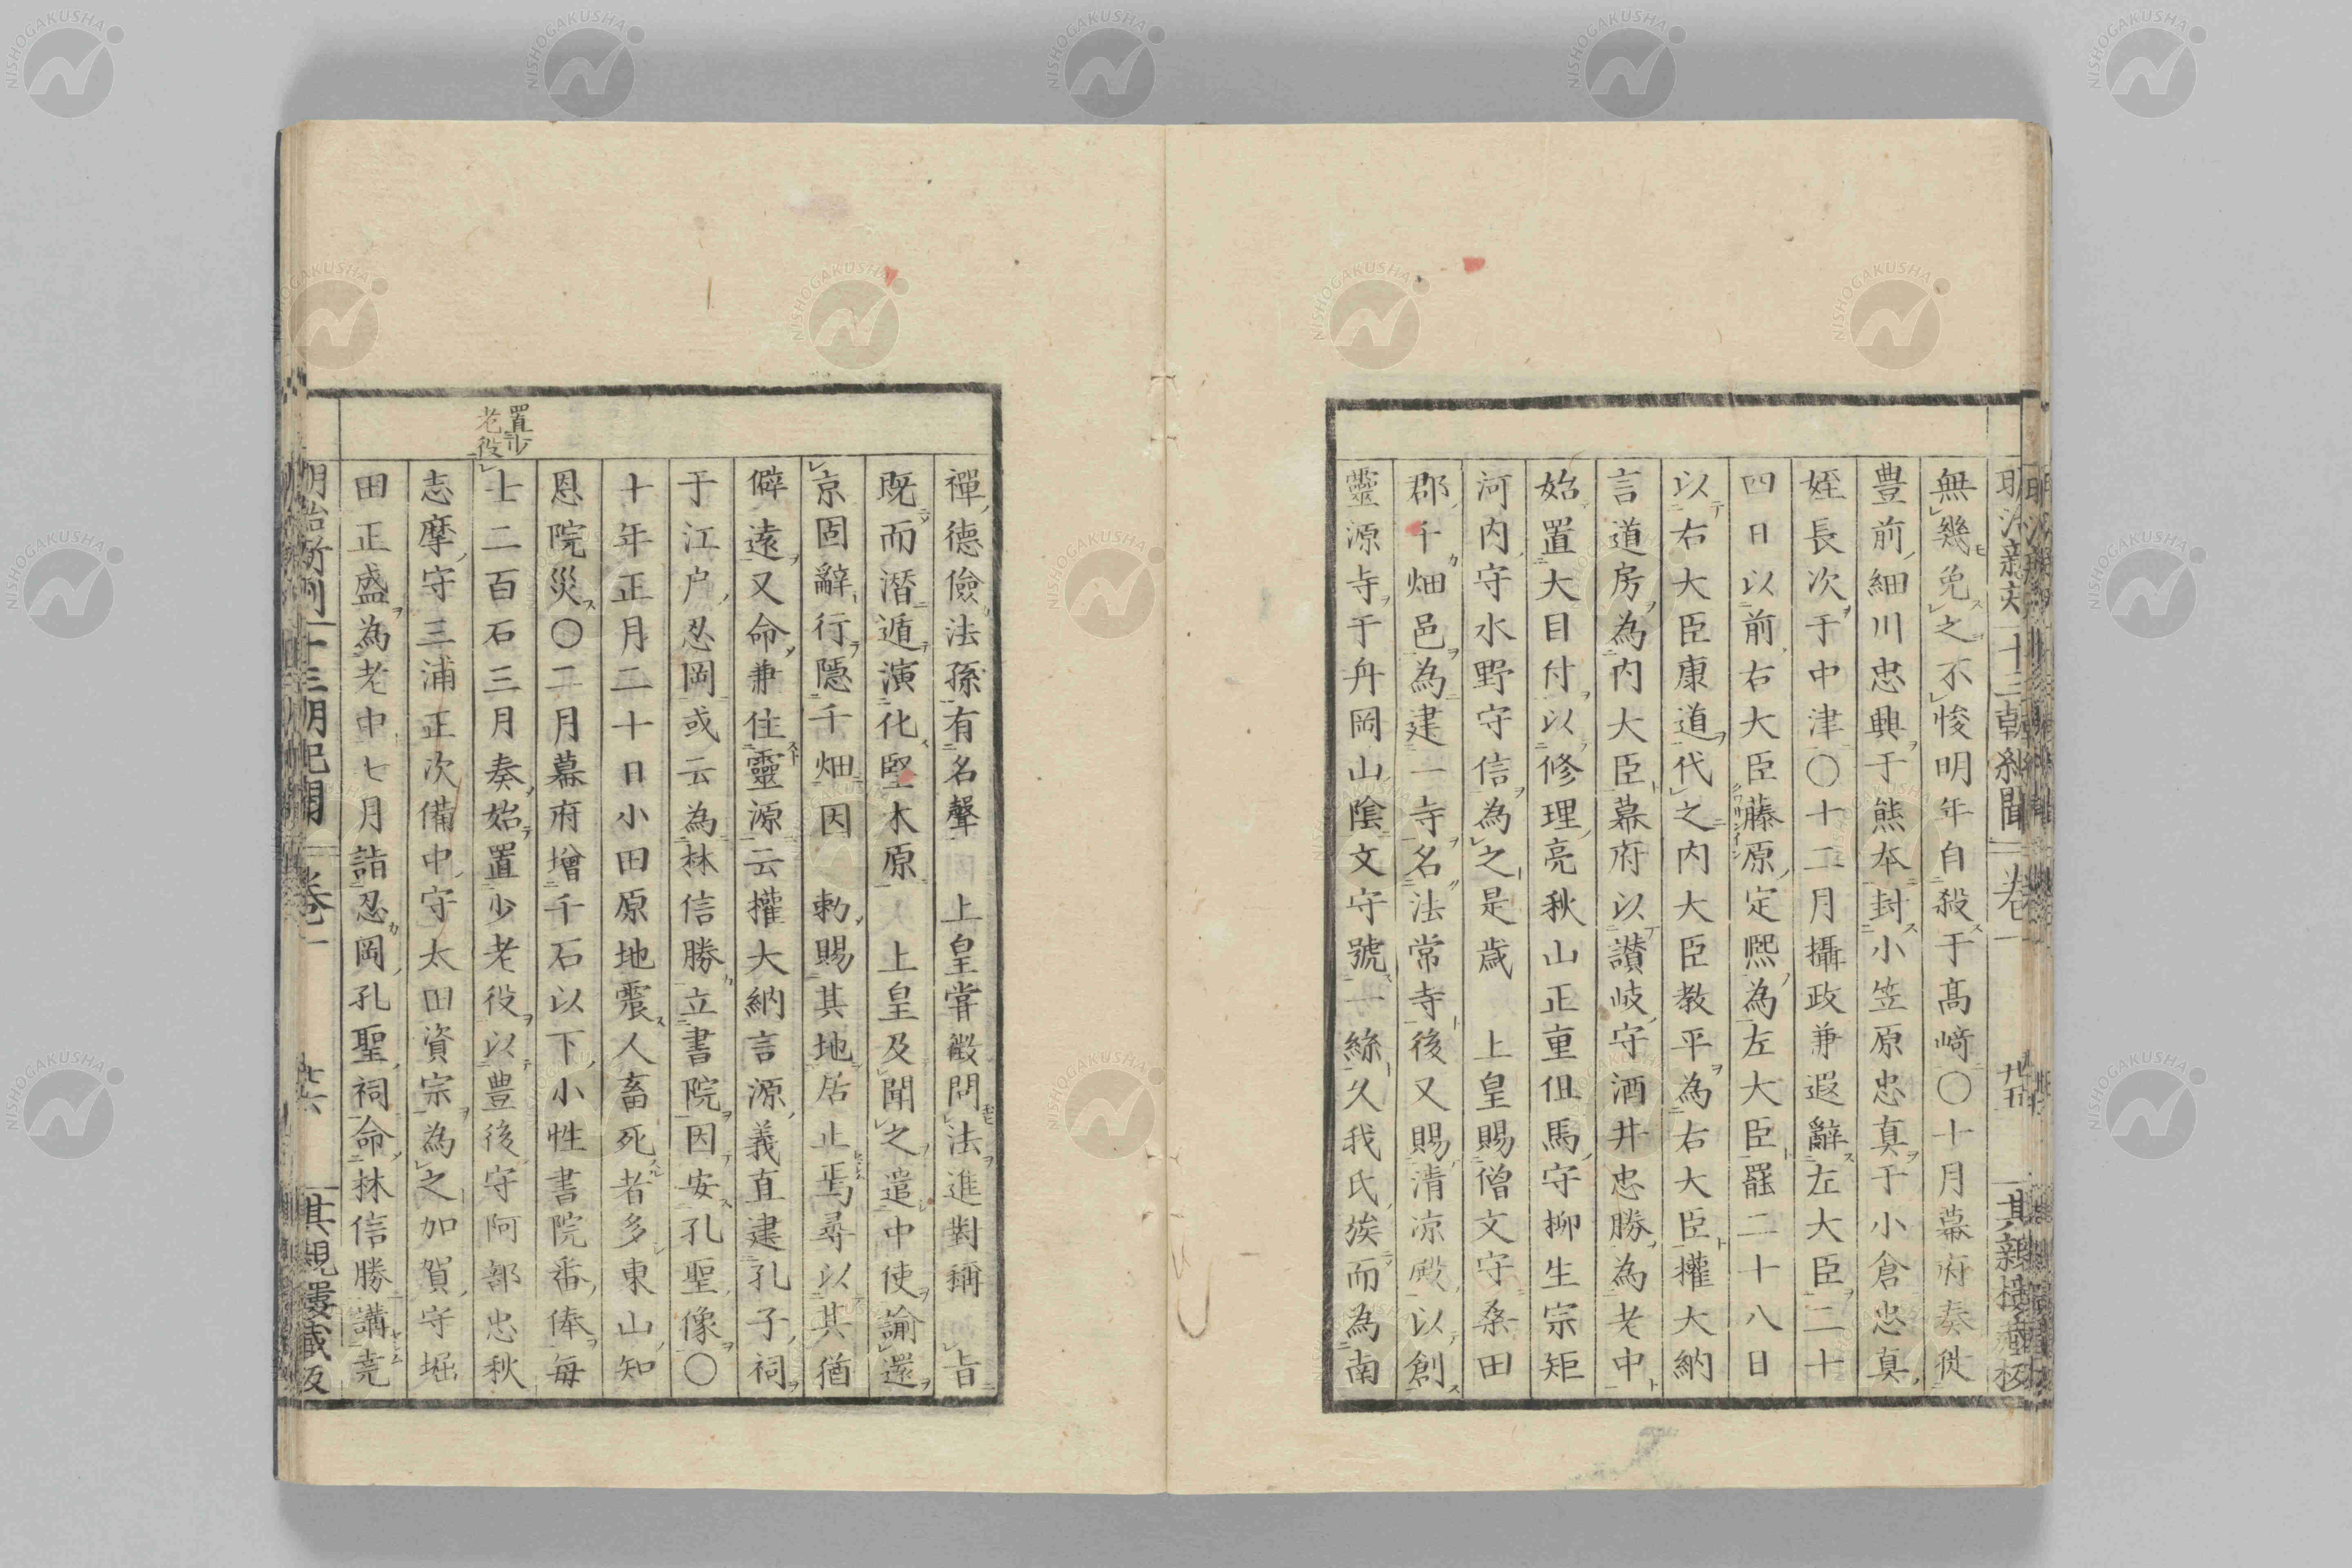 無幾免之不悛明年自殺于髙﨑〇十月幕府奏徙
豊前細川忠興于熊本封小笠原忠真于小倉忠真
姪長次于中津〇十二月攝政兼遐辭左大臣二十
四日以前右大臣藤原定熈為左大臣罷二十八日
以右大臣康道代之内大臣教平為右大臣權大納
言道房為内大臣幕府以讃岐守酒井忠勝為老中
始置大目付以修理亮秋山正重但馬守柳生宗矩
河内守水野守信為之是歳 上皇賜僧文守桑田
郡千畑邑為建一寺名法常寺後又賜清凉殿以創
靈源寺于舟岡山陰文守號一絲久我氏族而為南
禪德儉法孫有名聲 上皇甞徴問法進對稱 旨
既而潜遁演化堅木原 上皇及聞之遣中使諭還
京固辭行隱千畑因 勅賜其地居止焉尋以其猶
僻遠又命兼住靈源云權大納言源義直建孔子祠
于江户忍岡或云為林信勝立書院因安孔聖像〇
十年正月二十日小田原地震人畜死者多東山知
恩院災〇二月幕府增千石以下小性書院番俸每
士二百石三月奏始置少老役以豊後守阿部忠秋
志摩守三浦正次備中守太田資宗為之加賀守堀
田正盛為老中七月詣忍岡孔聖祠命林信勝講堯
置少
老役
明治新刻 十三朝紀聞 卷一 其親樓藏板
NISHOGAKUSHA